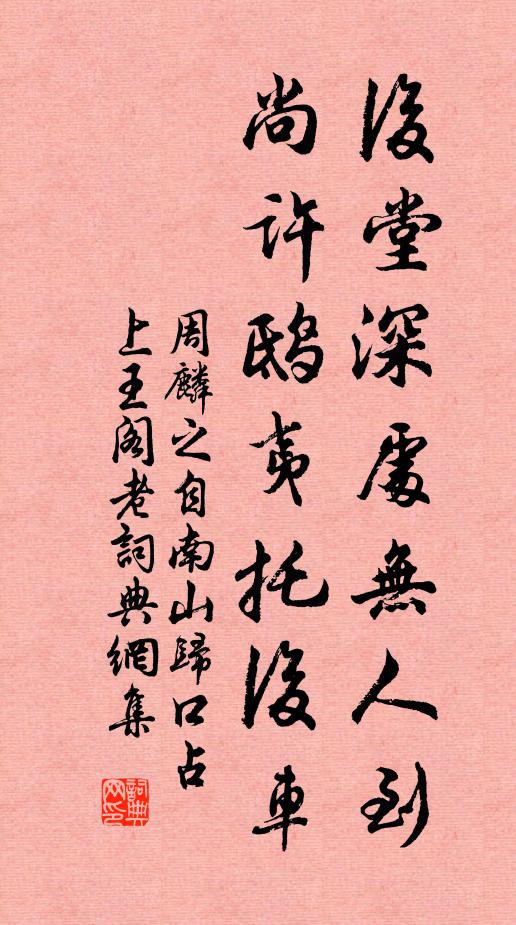 後堂深處無人到
尚許鴟夷托後車
周麟之自南山歸口占
上王阁老詞典網集
詞典网印